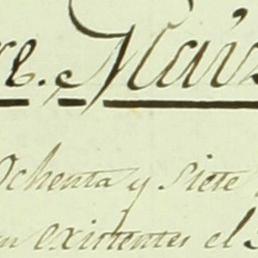 re. Mais
Ochenta y siete
en existentes el